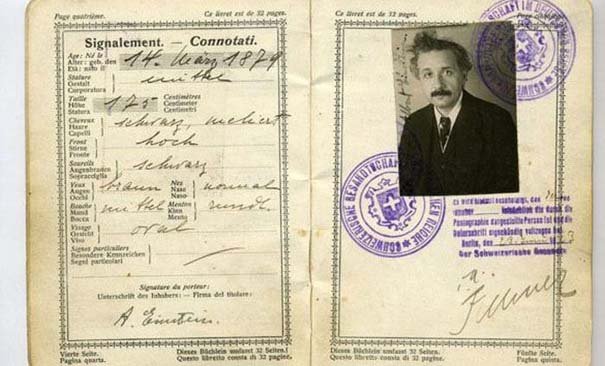 Page quatrième. Ce livret est de 32 pages.
Signalement. — Connotati.
Age: Né le
Alter: geb. den
Età: nato il
14. März 1879
Stature
Gestalt
Corporatura
mittel
Taille
Höhe
Statura
175
Centimètres
Centimeter
Centimetri
Cheveux
Haare
Capelli
schwarz, meliert
Front
Stirne
Fronte
hoch
Sourcils
Augenbrauen
Sopracciglia
schwarz
Yeux
Augen
Occhi
braun
Nez
Nase
Naso
normal
Bouche
Mund
Bocca
mittel
Menton
Kinn
Mento
rund.
Visage
Gesicht
Viso
oval
Signes particuliers
Besondere Kennzeichen
Segni particolari
Signature du porteur:
Unterschrift des Inhabers: - Firma del titolare:
A. Einstein.
Vierte Seite. Dieses Büchlein umfasst 32 Seiten.
Pagina quarta. Questo libretto consta di 32 pagine.
Page cinquième. Ce livret est de 32 pages.
SCHWEIZERISCHE GESANDTSCHAFT
REICHE
Es wird hiermit bescheinigt, das
die
Photographie dargestellte Person ist und die
Unterschrift eigenhändig vollzogen hat
Berlin, den
Der Schweizerische Gesandte
Dieses Büchlein umfasst 32 Seiten. Fünfte Seite.
Questo libretto consta di 32 pagine. Pagina quinta.